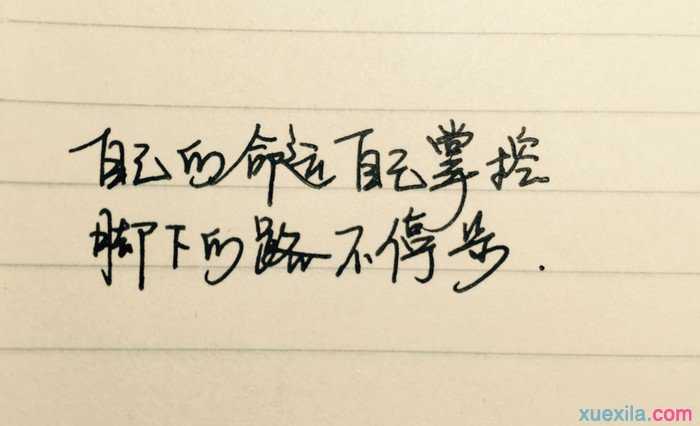 自己的命运自己掌控
脚下的路不停步.
xuexila.com